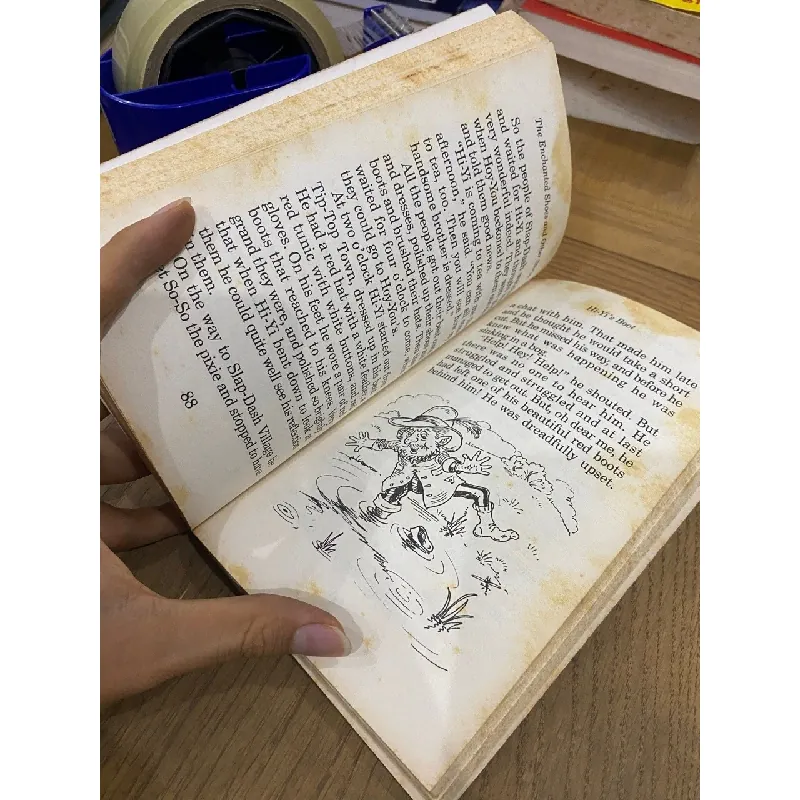 The Enchanted Shoes and Other
So the people of Slap-Dash
and waited for Hi-Yi and
very wonderful indeed. They
when Hoy-You beckoned to
and told them good news.
"Hi-Yi is coming to tea with me
afternoon," he said. "You can
to tea, too. Then you will see
handsome brother is dressed."
All the people got out their best
and dresses, polished up their shoes
boots and brushed their hats. Then
waited for four o'clock to come
they could go to Hoy-You's.
At two o'clock Hi-Yi started out
Tip-Top Town, dressed up in his
He had a red hat with a white feather
red tunic with white buttons, and
gloves. On his feet he wore a pair of
boots that reached to his knees,
grand they were, and polished so
that when Hi-Yi bent down to look
them, he could quite well see his
in them.
On the way to Slap-Dash Village he
So-So the pixie and stopped to
88
Hi-Yi's Boot
a chat with him. That made him late
and he thought he would take a short
cut. But he missed his way, and before he
knew what was happening he was
sinking in a bog.
"Help! Hey! Help!" he shouted. But
there was no one to hear him. He
struggled and struggled and at last
managed to get out. But, oh dear me, he
had left one of his beautiful red boots
behind him! He was dreadfully upset.